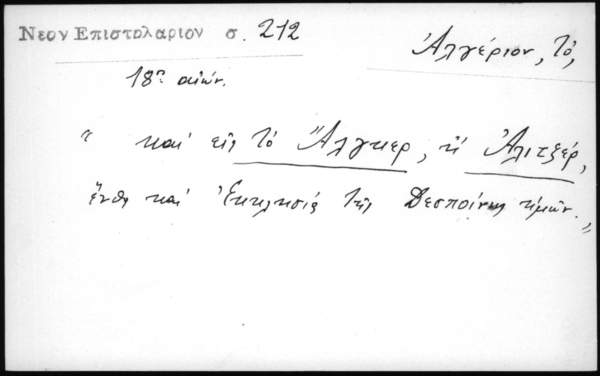 Νεον Επιστολαριον σ. 212
Ἀλγέριον, τὸ,
18ου αἰών.
" καὶ εἰς τὸ Ἄλγκερ, ἢ Ἀλιτζέρ,
ἔνθα καὶ Ἐκκλησία τῆς Δεσποίνης ἡμῶν. "